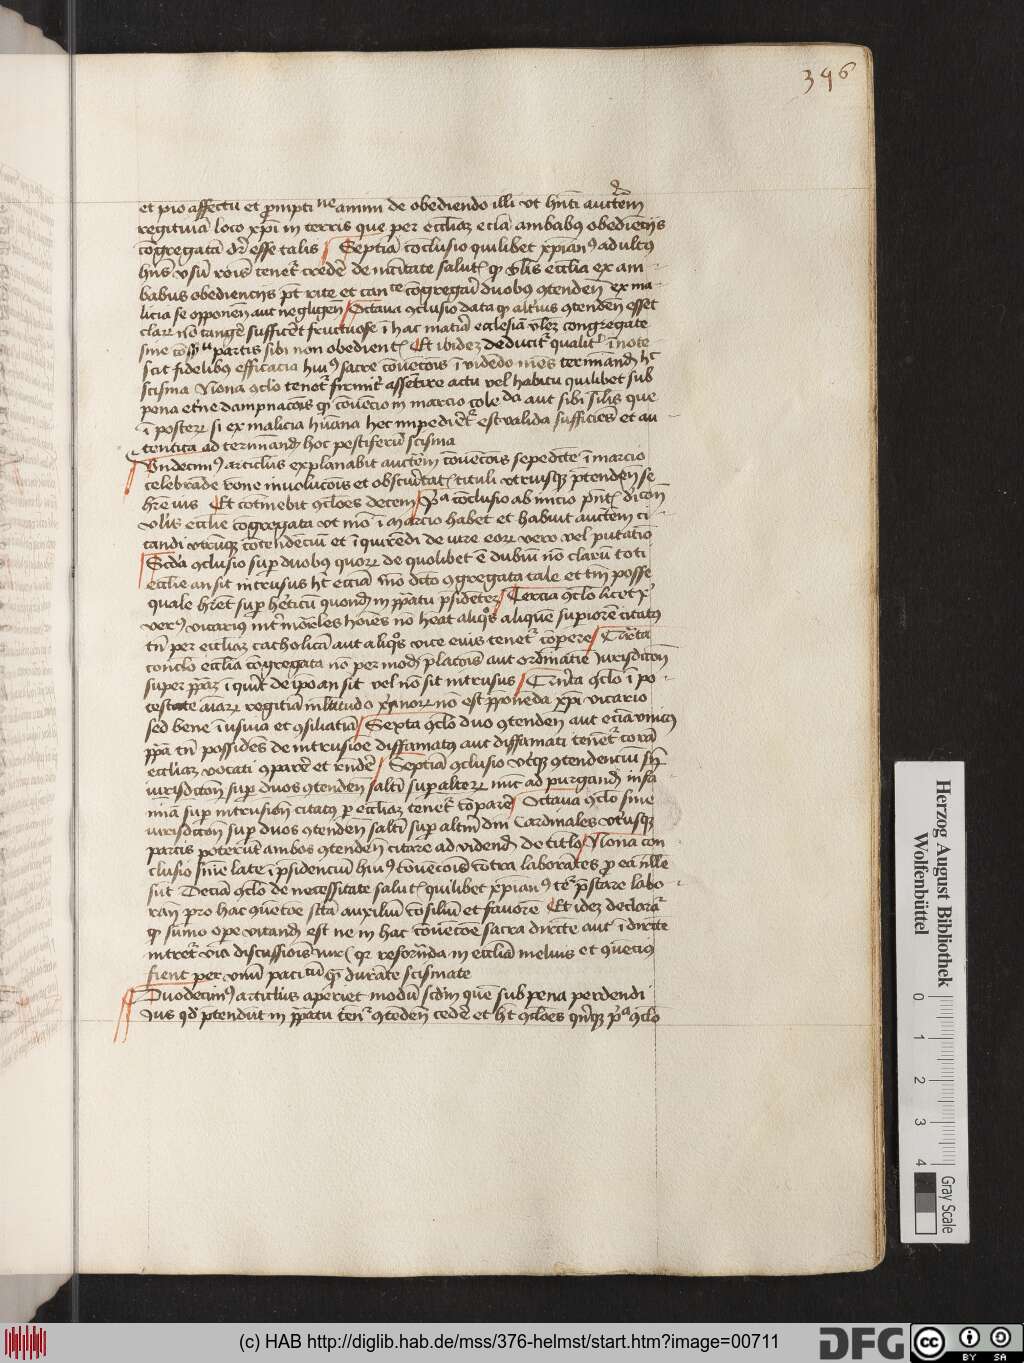 396
et pio affectu et prompti ne animi de obediendo illi ut hnti auctem
regitiuā loco xpi in terris que per eccliaz eclā ambabus obedienciis
cōgregatā dr esse talis Septīa conclusio quilibet xpian9 adultus
hns usū rōis tenet credere de nccitate salut qp vlis ecclia ex am
babus obedienciis pt rite et cance cōgregari duobus gtenden ex ma
licia se opponen aut negligen Octaua gclusio data qp alterius gtenden esset
clare nō tangere sufficeret fructuose ī hac materia ecclesiā vlez congregate
sine cōsensu partis sibi non obedient Et ibidez deducit qualit īnote
scit fidelibus efficacia hui9 sacre cōuencōis ī videdo mes terminand hc
scisma Nona gclo tenet firmit assentire actu vel habitu quilibet sub
pena etne dampnacōis qp cōuencio in marcio cole da aut sibi silis que
ī poster si ex malicia hūana hec impediet est valida sufficiēs et au
tentica ad terminand hoc pestiferū scisma
Undecim9 articlus explanabit auctem cōuencōis sepedcte ī marcio
celebrāde rone inuolucōis et obscuritat tituli utriusqz ptendēn se
hrē ius Et cōtinebit gclōes decem pa cōclusio ab inicio pnt dicen
vlis ecclie cōgregata ut mō ī marcio habet et habuit auctem ci
tandi utrūqz cōtendenciū et īquirēdi de iure eorz vero vel putatiuo
Scda gclusio sup duobus quorz de quolibet ē dubiū nō clarū toti
ecclie an sit intrusus ht ecclīa mō dcto gregata tale et tm posse
quale hret sup heticū quond in ppatu psidetez Tercia gclo licet xp
verus vicarius int mōrles hoīes nō heat aliqō aliquē supiorē citatus
tn per eccliaz catholicā aut aliqōs vice eius tenet cōpere Quarta
conclo ecclīa cōgregata nō per modū placōis aut ordinatiē iurisdiccōn
super ppaz īquirit de ipo an sit vel nō sit intrusus Quinta gclo ī po
testate aiarz regitiua in latitudo xpianorz nō est pponēda xpi vicario
sed bene ī usiua et gsiliatiā Sexta gclo duo gtenden aut eciā unicus
ppā tn possidēs de intrusiōe diffamatus aut diffamati tenet corā
eccliaz vocati gparē et rndē Septīa gclusio utqz gtendenciū sn
iurisdiccōn sup duos gtenden saltī sup alterz nūc ad purgand infa
miā sup intrusiōn citatus p eccliaz tenet cōparē Octaua gclo sine
iurisdiccōn sup duos gtenden saltī sup altm dni Cardinales utriusqz
partis poterūt ambos gtenden citare ad videnda de titlo Nona con
clusio sīne late ī psidenciū hui9 cōuencōis cōtra laborātes p ea nlle
sūt Deciā gclo de necessitate salut quilibet xpian9 tet pstare labo
rān pro hac gūecōe sctā auxiliū cōsiliū et fauorē Et idez declarat
qp sūmo ope vitand est ne in hac cōuecōe sacra dircte aut ī dircte
intret via discussiōis iur qz reformāda in eccliā melius et gueciōs
fient per vnū pacitcū qp durāte scismate
Duodecim9 articlus aperiet modū scdm quē sub pena perdendi
ius qd ptendūt in ppatu tent gtedēn cedē et ht gclōes qnqz pa gclo
Herzog August Bibliothek
Wolfenbüttel
0 1 2 3 4
Gray Scale
(c) HAB http://diglib.hab.de/mss/376-helmst/start.htm?image=00711
DFG
cc BY SA